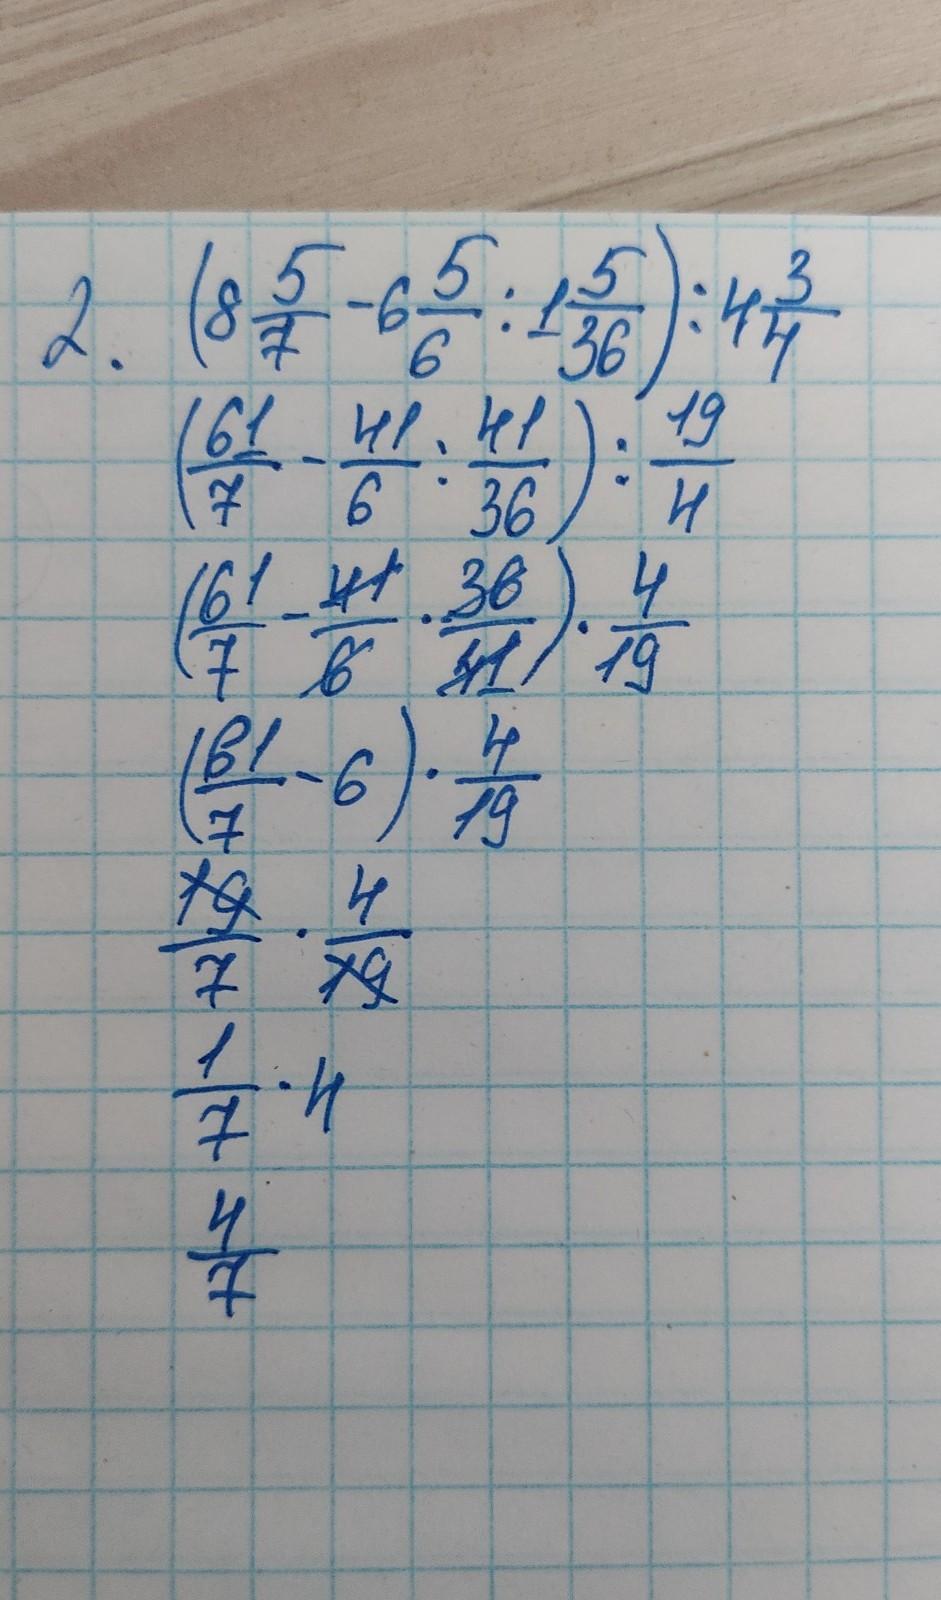 2. (8 5/7 - 6 5/6 : 1 5/36) : 4 3/4
(61/7 - 41/6 : 41/36) : 19/4
(61/7 - 41/6 · 36/41) · 4/19
(61/7 - 6) · 4/19
19/7 · 4/19
1/7 · 4
4/7